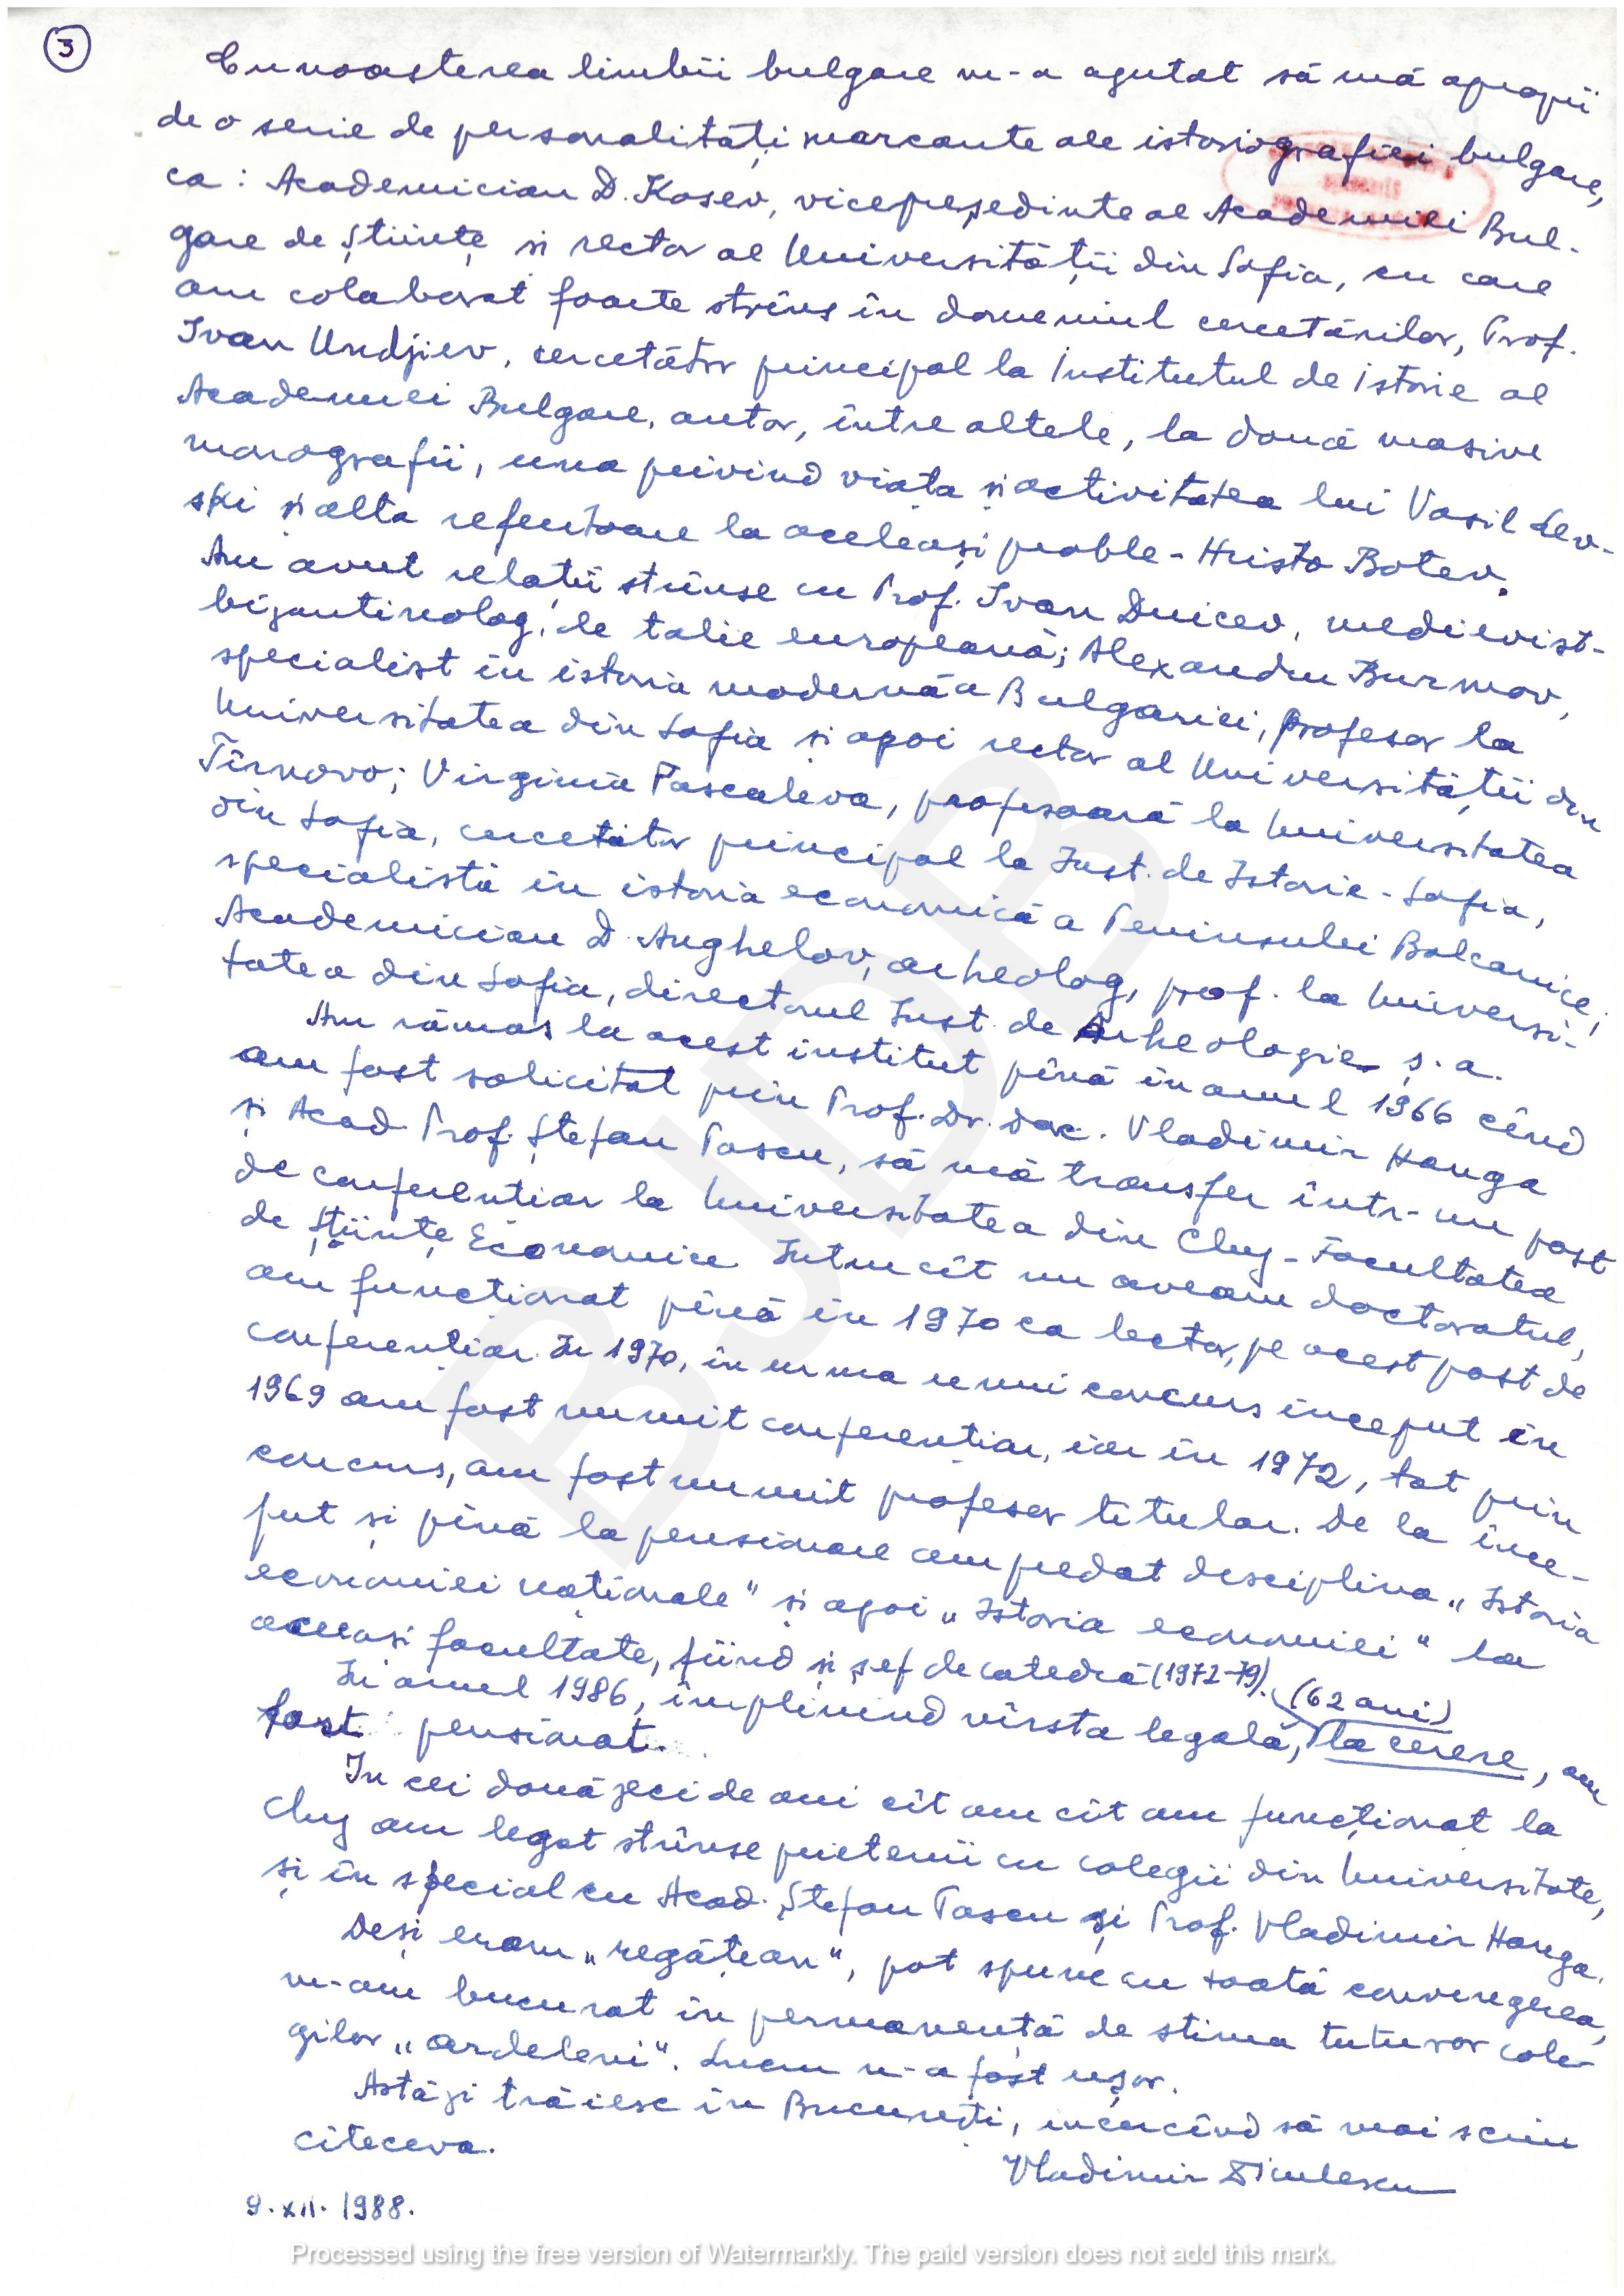 3
Cunoașterea limbii bulgare m-a ajutat să mă apropii
de o serie de personalități marcante ale istoriografiei bulgare,
ca: Academician D. Kosev, vicepreședinte al Academiei Bul-
gare de Științe si rector al Universității din Sofia, cu care
am colaborat foarte strîns în domeniul cercetărilor, Prof.
Ivan Undjiev, cercetător principal la Institutul de istorie al
Academiei Bulgare, autor, între altele, la două masive
monografii, una privind viața și activitatea lui Vasil Lev-
ski și alta referitoare la aceleași proble - Hristo Botev.
Am avut relații strînse cu Prof. Ivan Duicev, medievist-
bizantinolog, de talie europeană; Alexandru Burmov,
specialist în istoria modernă a Bulgariei, profesor la
Universitatea din Sofia și apoi rector al Universității din
Tîrnovo; Virginia Pascaleva, profesoară la Universitatea
din Sofia, cercetător principal la Inst. de Istorie - Sofia,
specialistă în istoria economică a Peninsulei Balcanice;
Academician D. Anghelov, arheolog, prof. la Universi-
tatea din Sofia, directorul Inst. de Arheologie ș.a.
Am rămas la acest institut pînă în anul 1966 cînd
am fost solicitat prin Prof. Dr. doc. Vladimir Hanga
și Acad. Prof. Ștefan Pascu, să mă transfer într-un post
de conferențiar la Universitatea din Cluj - Facultatea
de Științe Economice. Intrucît nu aveam doctoratul,
am funcționat pînă în 1970 ca lector, pe acest post de
conferențiar. In 1970, în urma unui concurs început în
1969 am fost numit conferențiar, iar în 1972, tot prin
concurs, am fost numit profesor titular. De la înce-
put și pînă la pensionare am predat disciplina „Istoria
economiei naționale" și apoi „Istoria economiei" la
aceeași facultate, fiind și șef de catedră (1972-79).
In anul 1986, împlinind vîrsta legală, (62 ani) la cerere, am
fost pensionat.
In cei două zeci de ani cît am cît am funcționat la
Cluj am legat strînse prietenii cu colegii din Universitate,
și în special cu Acad. Ștefan Pascu și Prof. Vladimir Hanga.
Deși eram „regățean", pot spune cu toată convingerea,
m-am bucurat în permanență de stima tuturor cole-
gilor „ardeleni". Lucru n-a fost ușor.
Astăzi trăiesc în București, încercînd să mai scriu
cîteceva.
Vladimir Diculescu
9.XII.1988.
Processed using the free version of Watermarkly. The paid version does not add this mark.
BJDB